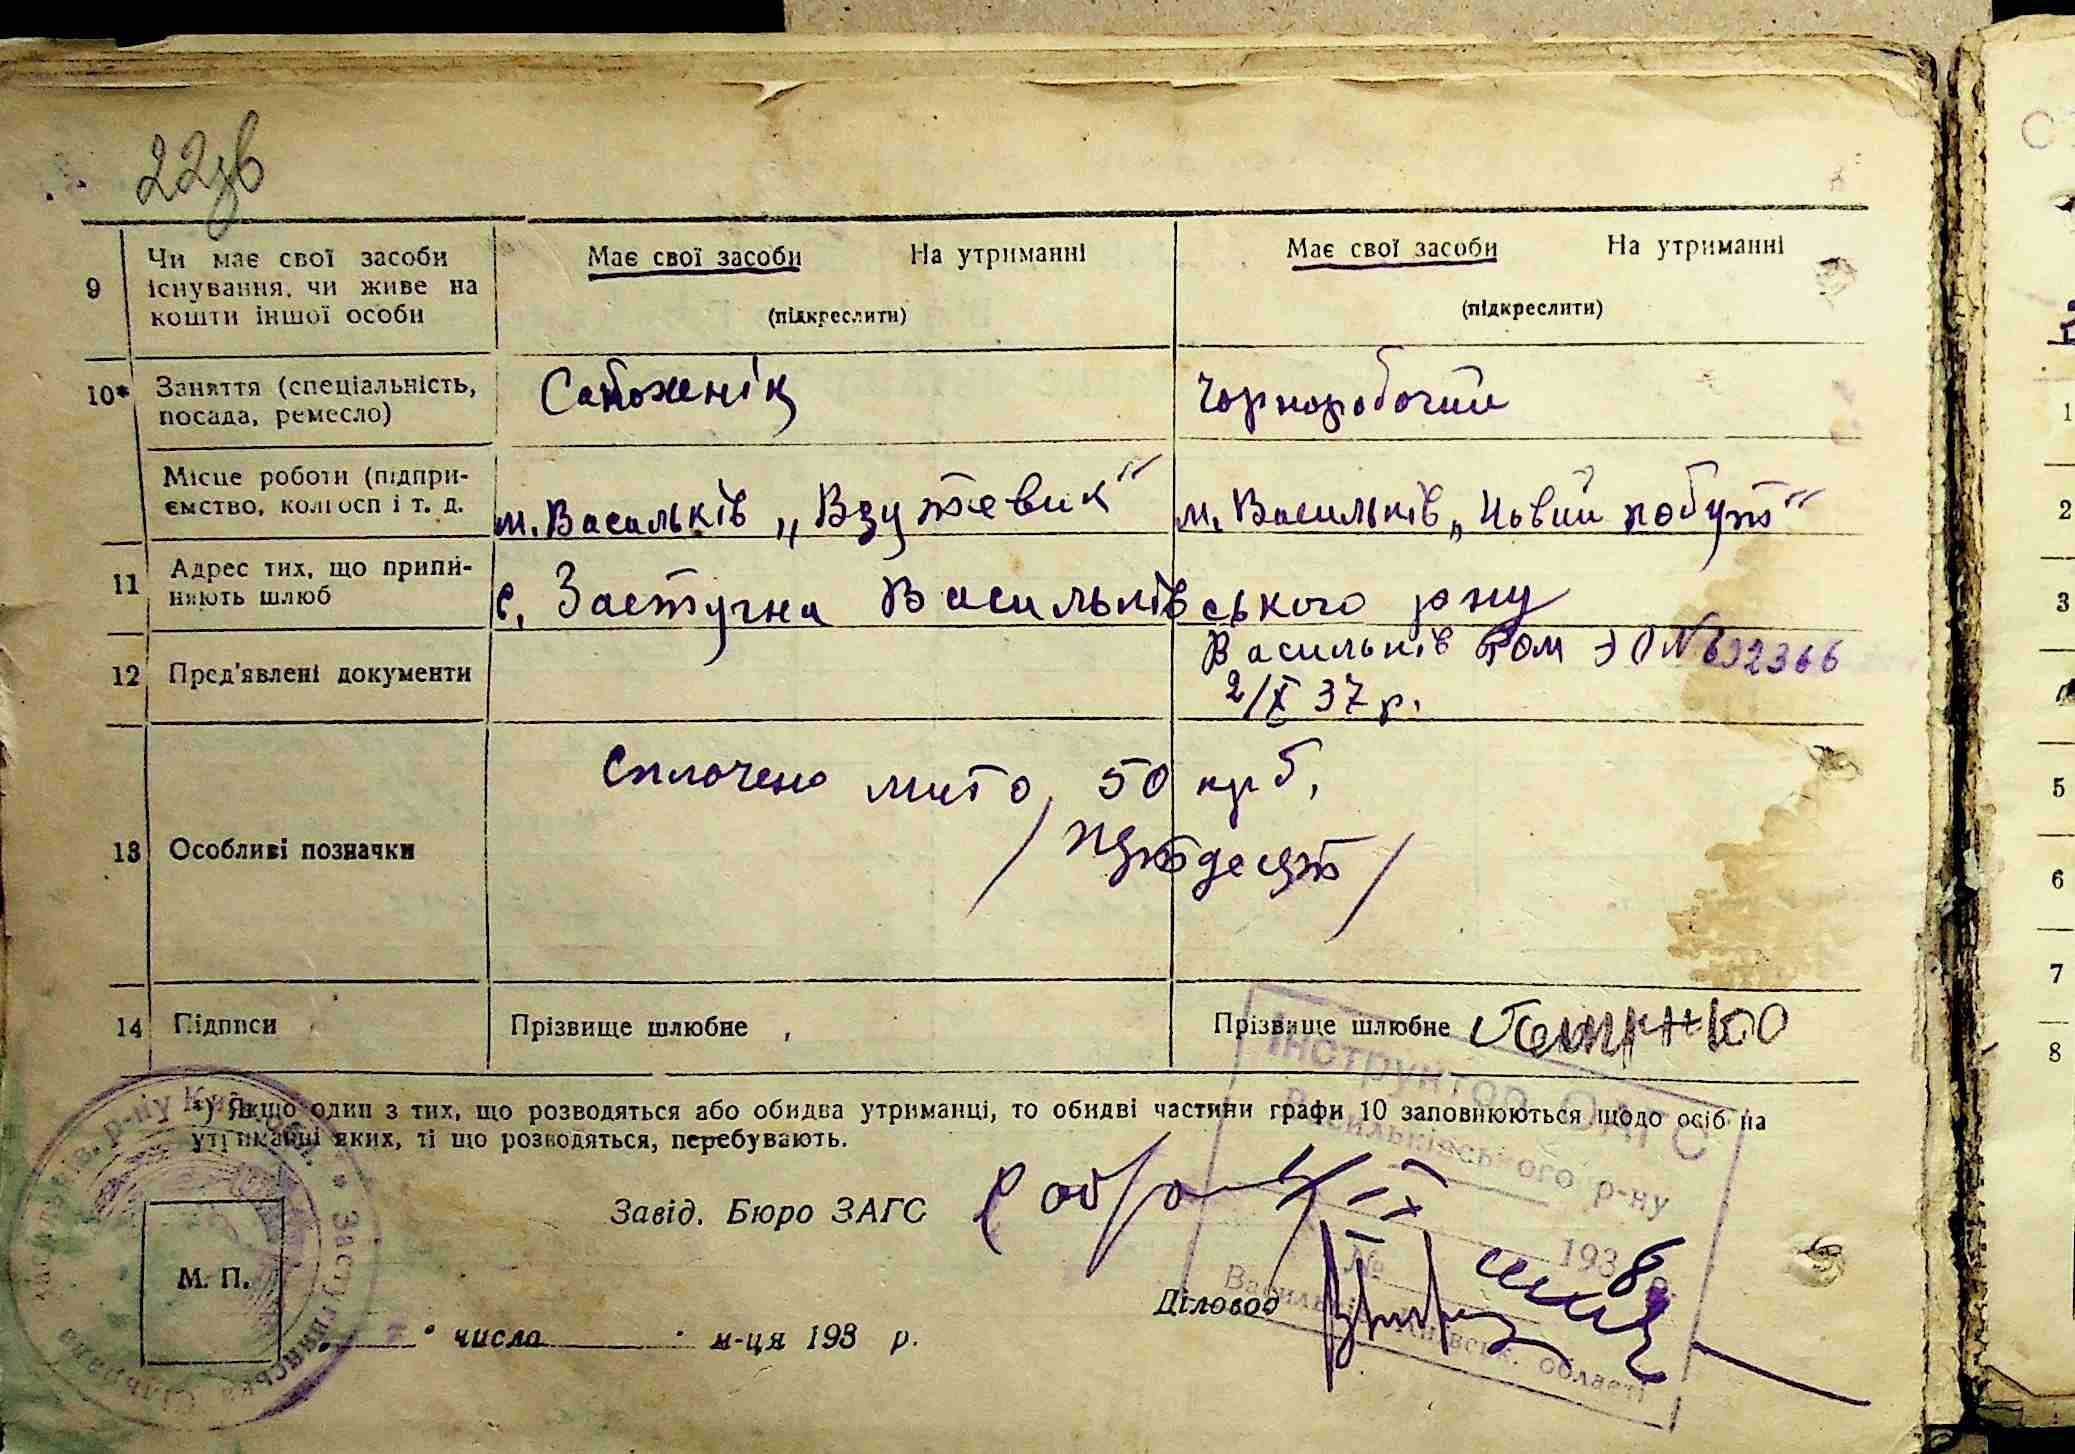 22зв
9 Чи має свої засоби існування, чи живе на кошти іншої особи
Має свої засоби На утриманні
(підкреслити)
Має свої засоби На утриманні
(підкреслити)
10* Заняття (спеціальність, посада, ремесло)
Сапоженік
Чорноробочий
Місце роботи (підприємство, колгосп і т. д.
м. Васильків „Взутевик“
м. Васильків „Новий побут“
11 Адрес тих, що припиняють шлюб
с. Застугна Васильківського р-ну
12 Пред'явлені документи
Васильків РОМ ЭО № 692366
2/X 37 р.
13 Особливі позначки
Сплочено мито, 50 крб,
/пятдесят/
14 Підписи
Прізвище шлюбне
Прізвище шлюбне
*) Якщо один з тих, що розводяться або обидва утриманці, то обидві частини графи 10 заповнюються щодо осіб на
утриманні яких, ті що розводяться, перебувають.
Інструктор ОАГС
Васильківського р-ну
IX
193 8 р.
№
Васильків, Київськ. області
Завід. Бюро ЗАГС
Діловод
М. П.
" " число м-ця 193 р.
Васильків. р-ну Київ. обл. * Застугнянська Сільрада
1
2
3
5
6
7
8